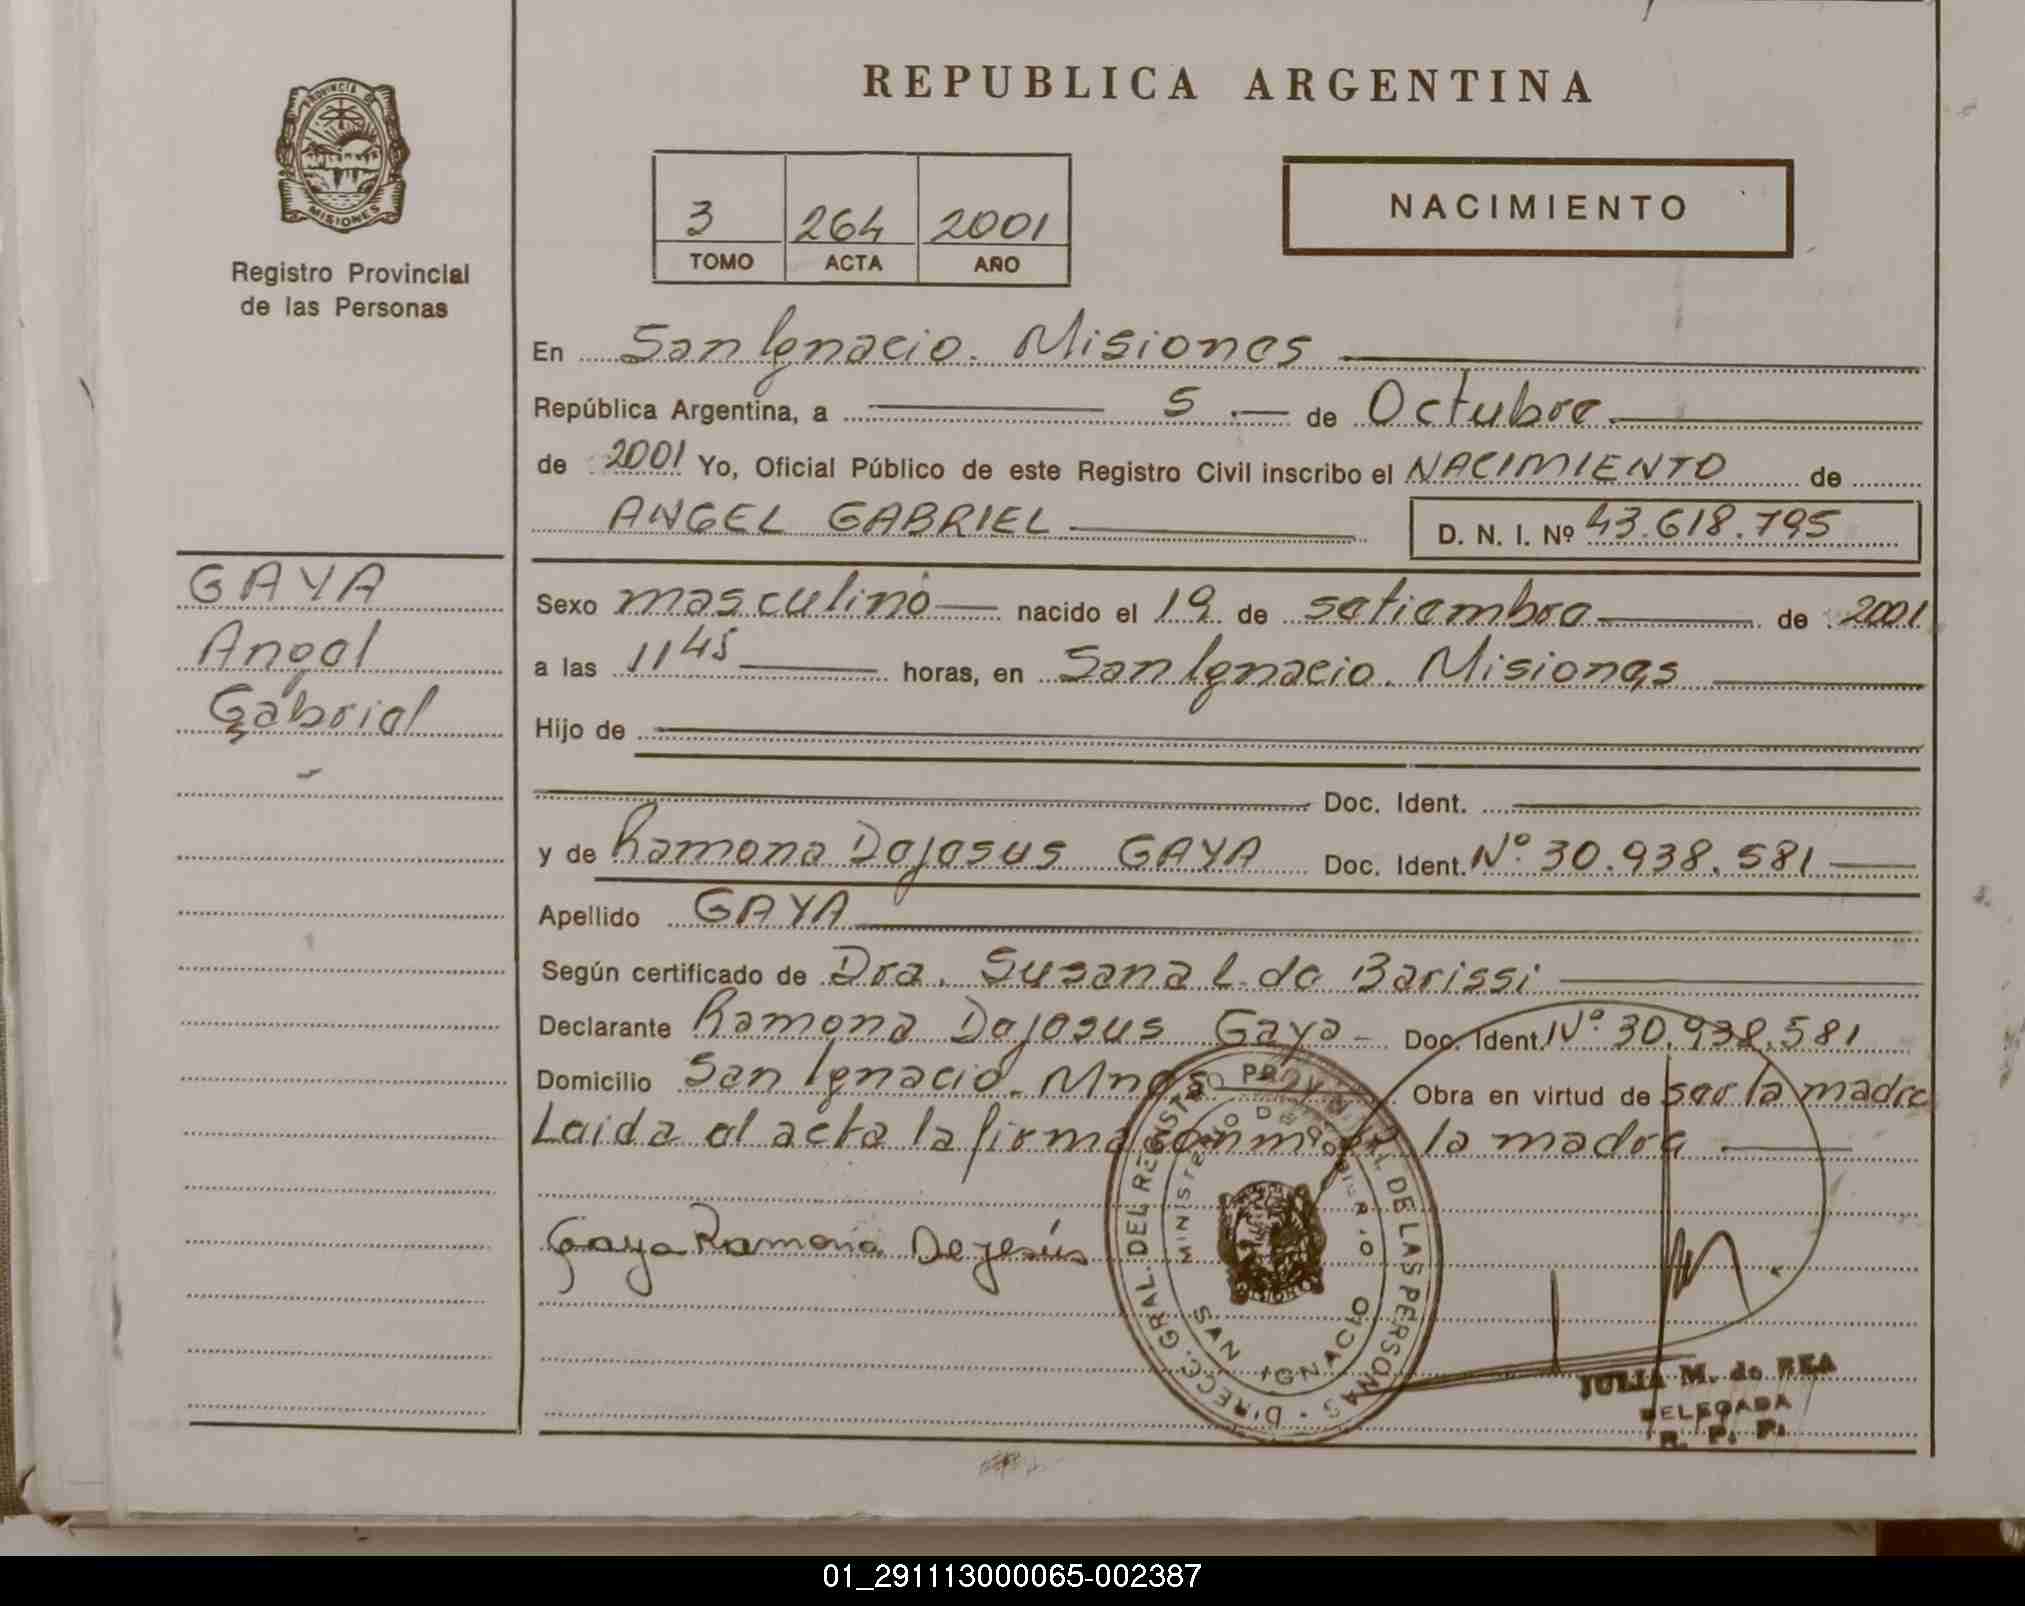 PROVINCIA DE
MISIONES
Registro Provincial
de las Personas
REPUBLICA ARGENTINA
3 264 2001
TOMO ACTA AÑO
NACIMIENTO
En San Ignacio. Misiones
República Argentina, a 5 de Octubre
de 2001 Yo, Oficial Público de este Registro Civil inscribo el NACIMIENTO de
ANGEL GABRIEL D. N. I. Nº 43.618.795
GAYA
Angel
Gabriel
Sexo masculino nacido el 19 de setiembre de 2001
a las 11 45 horas, en San Ignacio. Misiones
Hijo de
Doc. Ident.
y de Ramona Dejesus GAYA Doc. Ident. Nº. 30.938.581
Apellido GAYA
Según certificado de Dra. Susana L. de Barissi
Declarante Ramona Dejesus Gaya Doc. Ident. Nº. 30.938.581
Domicilio San Ignacio. Mnes Obra en virtud de ser la madre
Leida el acta la firma conmigo la madre
Gaya Ramona De jesús
DIRECC. GRAL. DEL REGISTRO PROVINCIAL DE LAS PERSONAS
MINISTERIO DE GOBIERNO
SAN IGNACIO
JULIA M. de REA
DELEGADA
R. P. P.
01_291113000065-002387